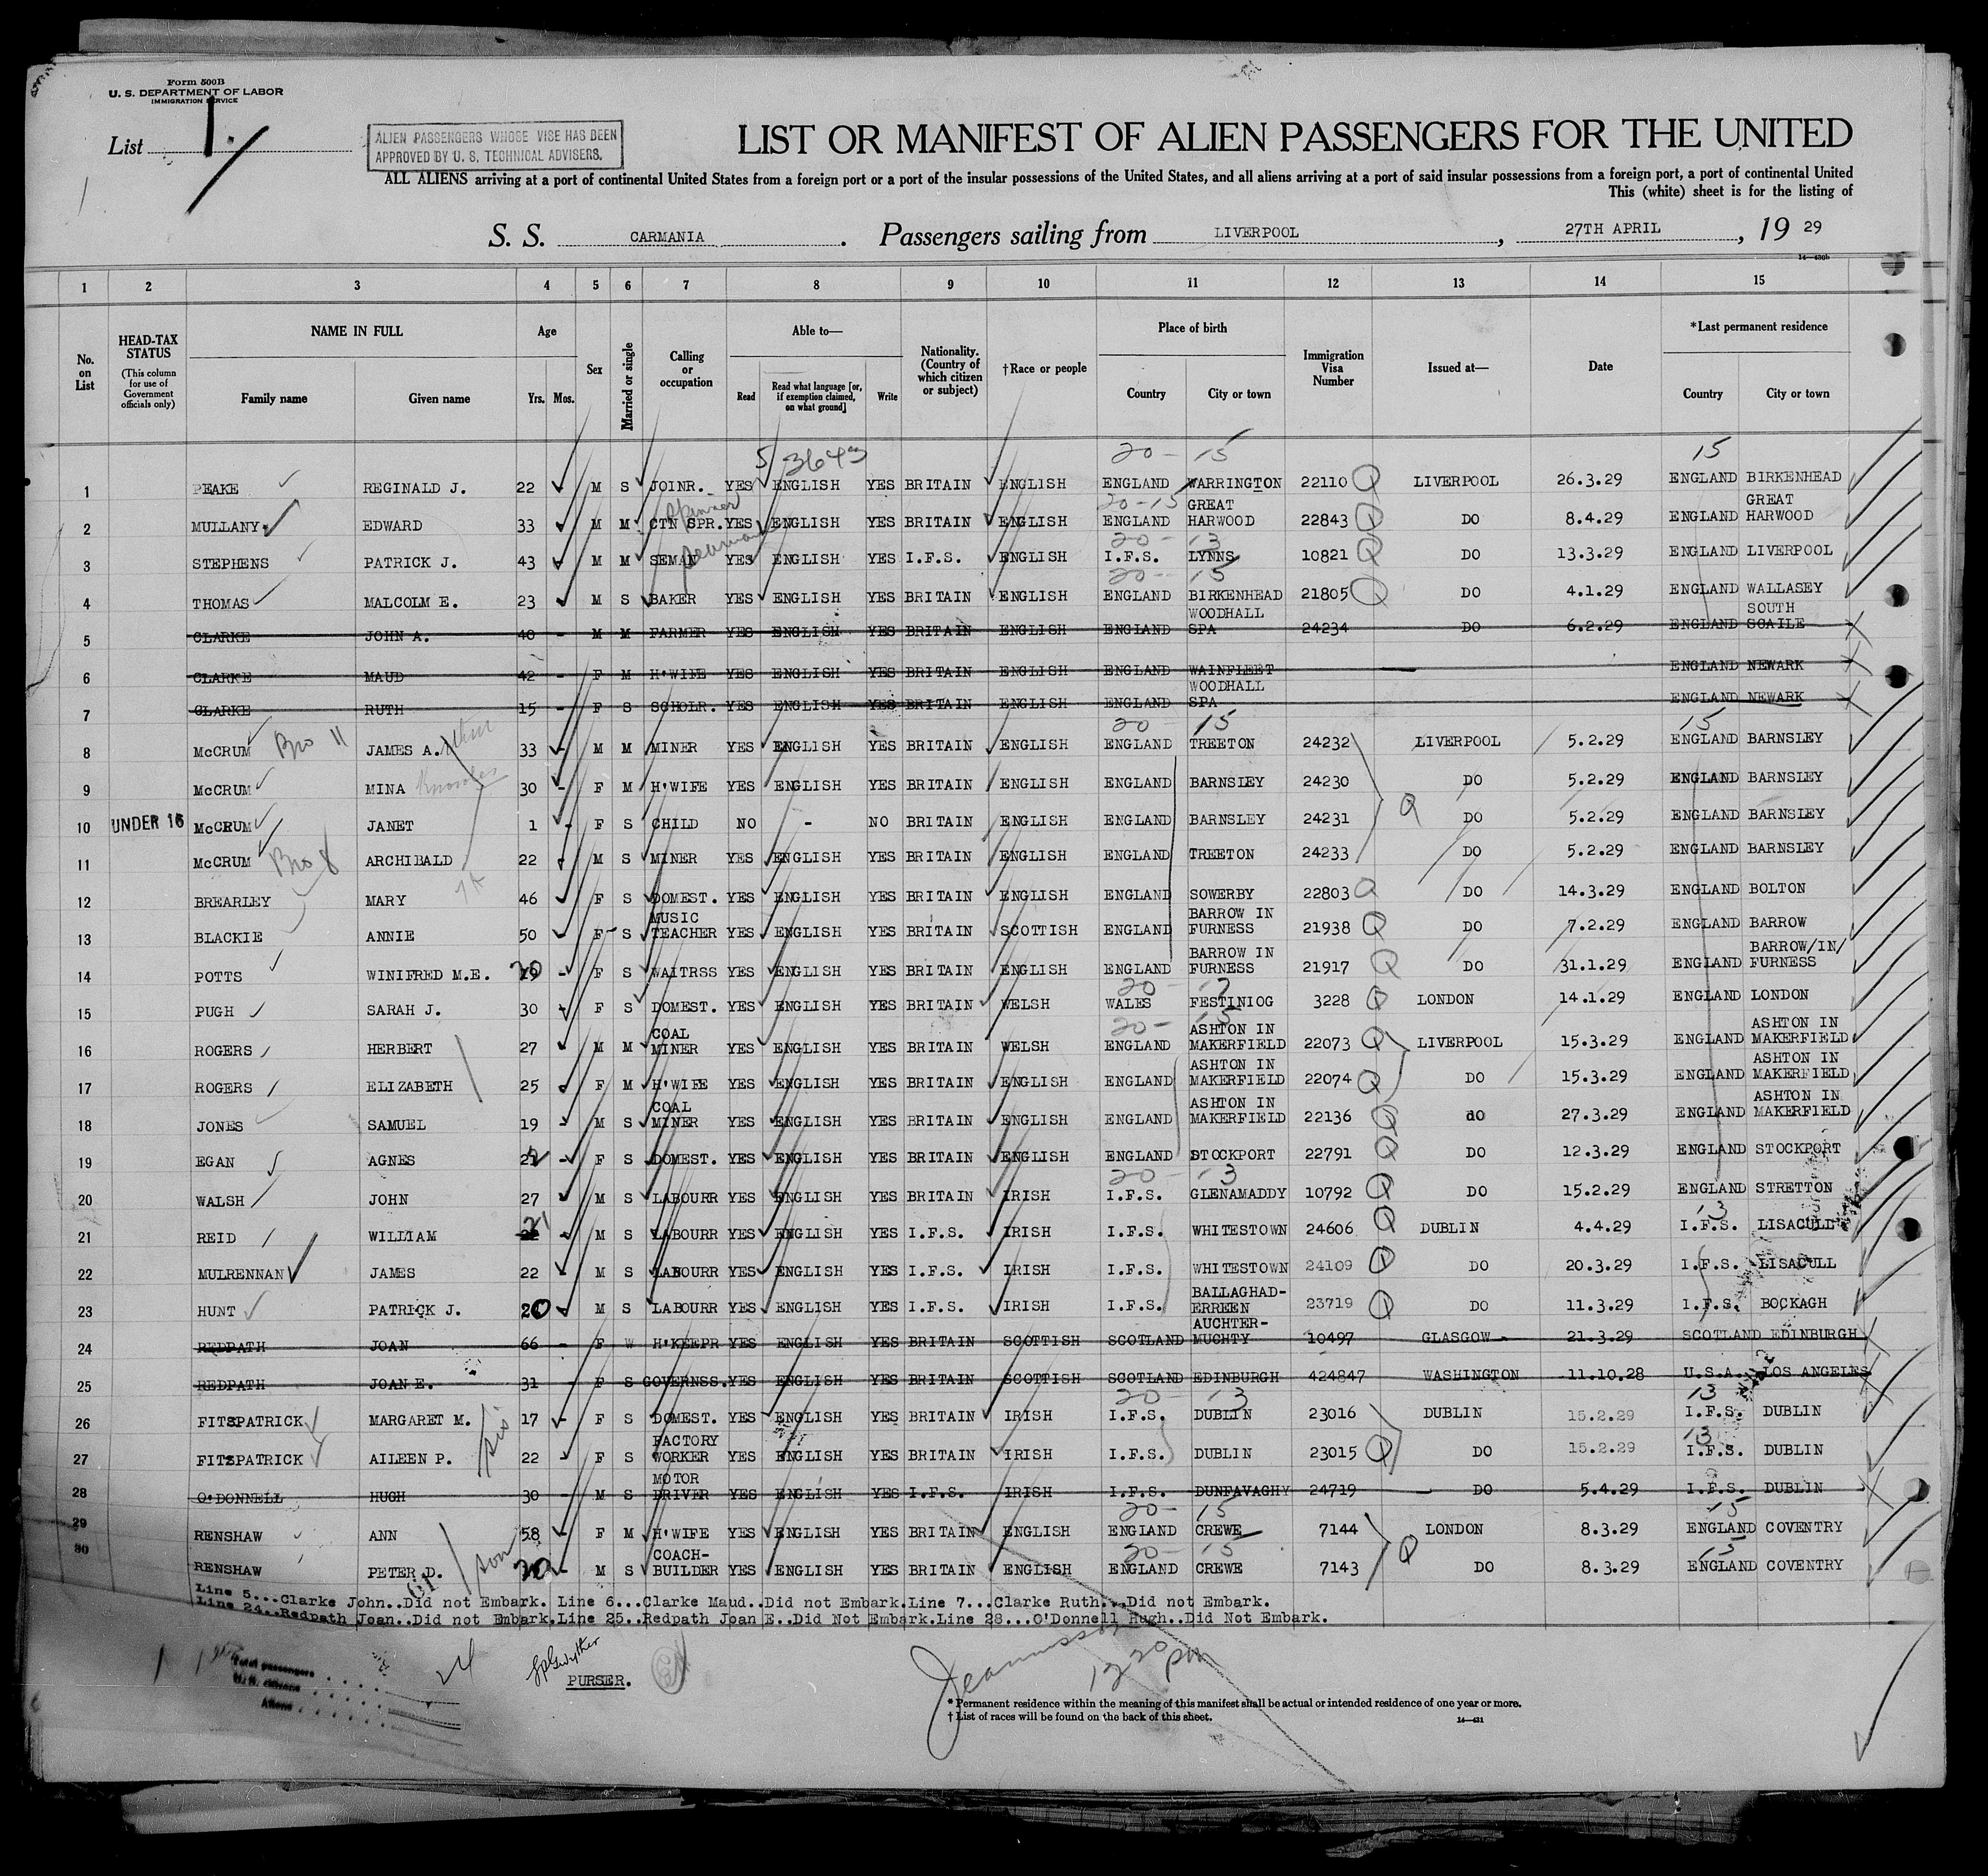 Form 500B
U. S. DEPARTMENT OF LABOR
IMMIGRATION SERVICE
List 1.
ALIEN PASSENGERS WHOSE VISE HAS BEEN
APPROVED BY U. S. TECHNICAL ADVISERS.
LIST OR MANIFEST OF ALIEN PASSENGERS FOR THE UNITED
ALL ALIENS arriving at a port of continental United States from a foreign port or a port of the insular possessions of the United States, and all aliens arriving at a port of said insular possessions from a foreign port, a port of continental United
This (white) sheet is for the listing of
S. S. CARMANIA. Passengers sailing from LIVERPOOL, 27TH APRIL, 19 29
14—430b
1 2 3 4 5 6 7 8 9 10 11 12 13 14 15
No. on List
HEAD-TAX STATUS (This column for use of Government officials only)
NAME IN FULL Family name Given name
Age Yrs. Mos.
Sex
Married or single
Calling or occupation
Able to— Read Read what language [or, if exemption claimed, on what ground] Write
Nationality. (Country of which citizen or subject)
†Race or people
Place of birth Country City or town
Immigration Visa Number
Issued at—
Date
*Last permanent residence Country City or town
5 3643 20 - 15 15
1 PEAKE REGINALD J. 22 M S JOINR. YES ENGLISH YES BRITAIN ENGLISH ENGLAND WARRINGTON 22110 Q LIVERPOOL 26.3.29 ENGLAND BIRKENHEAD
Spinner 20-15
2 MULLANY EDWARD 33 M M CTN SPR. YES ENGLISH YES BRITAIN ENGLISH ENGLAND GREAT HARWOOD 22843 Q DO 8.4.29 ENGLAND GREAT HARWOOD
seaman 20- 13
3 STEPHENS PATRICK J. 43 M M SEMAN YES ENGLISH YES I.F.S. ENGLISH I.F.S. LYNNS 10821 Q DO 13.3.29 ENGLAND LIVERPOOL
20- 15
4 THOMAS MALCOLM E. 23 M S BAKER YES ENGLISH YES BRITAIN ENGLISH ENGLAND BIRKENHEAD 21805 DO 4.1.29 ENGLAND WALLASEY
5 CLARKE JOHN A. 40 - M M FARMER YES ENGLISH YES BRITAIN ENGLISH ENGLAND WOODHALL SPA 24234 DO 6.2.29 ENGLAND SOUTH SCAILE X
6 CLARKE MAUD 42 - F M H'WIFE YES ENGLISH YES BRITAIN ENGLISH ENGLAND WAINFLEET ENGLAND NEWARK X
7 CLARKE RUTH 15 - F S SCHOLR. YES ENGLISH YES BRITAIN ENGLISH ENGLAND WOODHALL SPA ENGLAND NEWARK X
20 - 15 15
8 McCRUM Bro 11 JAMES A. 33 - M M MINER YES ENGLISH YES BRITAIN ENGLISH ENGLAND TREETON 24232 LIVERPOOL 5.2.29 ENGLAND BARNSLEY
9 McCRUM MINA 30 - F M H'WIFE YES ENGLISH YES BRITAIN ENGLISH ENGLAND BARNSLEY 24230 DO 5.2.29 ENGLAND BARNSLEY
10 UNDER 16 McCRUM JANET 1 - F S CHILD NO - NO BRITAIN ENGLISH ENGLAND BARNSLEY 24231 Q DO 5.2.29 ENGLAND BARNSLEY
11 McCRUM Bro 8 ARCHIBALD 22 - M S MINER YES ENGLISH YES BRITAIN ENGLISH ENGLAND TREETON 24233 DO 5.2.29 ENGLAND BARNSLEY
12 BREARLEY MARY 46 F S DOMEST. YES ENGLISH YES BRITAIN ENGLISH ENGLAND SOWERBY 22803 Q DO 14.3.29 ENGLAND BOLTON
13 BLACKIE ANNIE 50 - F S MUSIC TEACHER YES ENGLISH YES BRITAIN SCOTTISH ENGLAND BARROW IN FURNESS 21938 Q DO 7.2.29 ENGLAND BARROW
14 POTTS WINIFRED M.E. 20 - F S WAITRSS YES ENGLISH YES BRITAIN ENGLISH ENGLAND BARROW IN FURNESS 21917 Q DO 31.1.29 ENGLAND BARROW/IN/ FURNESS
20 - 17
15 PUGH SARAH J. 30 - F S DOMEST. YES ENGLISH YES BRITAIN WELSH WALES FESTINIOG 3228 Q LONDON 14.1.29 ENGLAND LONDON
20- 15
16 ROGERS HERBERT 27 M M COAL MINER YES ENGLISH YES BRITAIN WELSH ENGLAND ASHTON IN MAKERFIELD 22073 Q LIVERPOOL 15.3.29 ENGLAND ASHTON IN MAKERFIELD
17 ROGERS ELIZABETH 25 F M H'WIFE YES ENGLISH YES BRITAIN ENGLISH ENGLAND ASHTON IN MAKERFIELD 22074 Q DO 15.3.29 ENGLAND ASHTON IN MAKERFIELD
18 JONES SAMUEL 19 - M S COAL MINER YES ENGLISH YES BRITAIN ENGLISH ENGLAND ASHTON IN MAKERFIELD 22136 Q dO 27.3.29 ENGLAND ASHTON IN MAKERFIELD
19 EGAN AGNES - F S DOMEST. YES ENGLISH YES BRITAIN ENGLISH ENGLAND STOCKPORT 22791 Q DO 12.3.29 ENGLAND STOCKPORT
20 - 13
20 WALSH JOHN 27 M S LABOURR YES ENGLISH YES BRITAIN IRISH I.F.S. GLENAMADDY 10792 Q DO 15.2.29 ENGLAND STRETTON
13
21 REID WILLIAM 21 - M S LABOURR YES ENGLISH YES I.F.S. IRISH I.F.S. WHITESTOWN 24606 Q DUBLIN 4.4.29 I.F.S. LISACULL
22 MULRENNAN JAMES 22 - M S LABOURR YES ENGLISH YES I.F.S. IRISH I.F.S. WHITESTOWN 24109 Q DO 20.3.29 I.F.S. LISACULL
23 HUNT PATRICK J. 20 M S LABOURR YES ENGLISH YES I.F.S. IRISH I.F.S. BALLAGHAD-ERREEN 23719 Q DO 11.3.29 I.F.S. BOCKAGH
24 REDPATH JOAN 66 - F W H'KEEPR YES ENGLISH YES BRITAIN SCOTTISH SCOTLAND AUCHTER-MUCHTY 10497 GLASGOW - 21.3.29 SCOTLAND EDINBURGH X
25 REDPATH JOAN E. 31 - F S GOVERNSS. YES ENGLISH YES BRITAIN SCOTTISH SCOTLAND EDINBURGH 424847 WASHINGTON 11.10.28 U.S.A. LOS ANGELES X
20- 13 13
26 FITZPATRICK MARGARET M. 17 - F S DOMEST. YES ENGLISH YES BRITAIN IRISH I.F.S. DUBLIN 23016 DUBLIN 15.2.29 I.F.S. DUBLIN
sis 13
27 FITZPATRICK AILEEN P. 22 - F S FACTORY WORKER YES ENGLISH YES BRITAIN IRISH I.F.S. DUBLIN 23015 Q DO 15.2.29 I.F.S. DUBLIN
28 O'DONNELL HUGH 30 - M S MOTOR DRIVER YES ENGLISH YES I.F.S. IRISH I.F.S. DUNFAVAGHY 24719 DO 5.4.29 I.F.S. DUBLIN X
20- 15 15
29 RENSHAW ANN 58 - F M H'WIFE YES ENGLISH YES BRITAIN ENGLISH ENGLAND CREWE 7144 LONDON 8.3.29 ENGLAND COVENTRY
son 20- 15 15
30 RENSHAW PETER D. 20 - M S COACH-BUILDER YES ENGLISH YES BRITAIN ENGLISH ENGLAND CREWE 7143 Q DO 8.3.29 ENGLAND COVENTRY
19
Line 5...Clarke John..Did not Embark. Line 6...Clarke Maud..Did not Embark.Line 7...Clarke Ruth...Did not Embark.
Line 24..Redpath Joan..Did not Embark.Line 25..Redpath Joan E..Did Not Embark.Line 28...O'Donnell Hugh..Did Not Embark.
Total passengers
U. S. citizens
Aliens
24
PURSER.
12 20 pm
* Permanent residence within the meaning of this manifest shall be actual or intended residence of one year or more.
† List of races will be found on the back of this sheet.
14—431